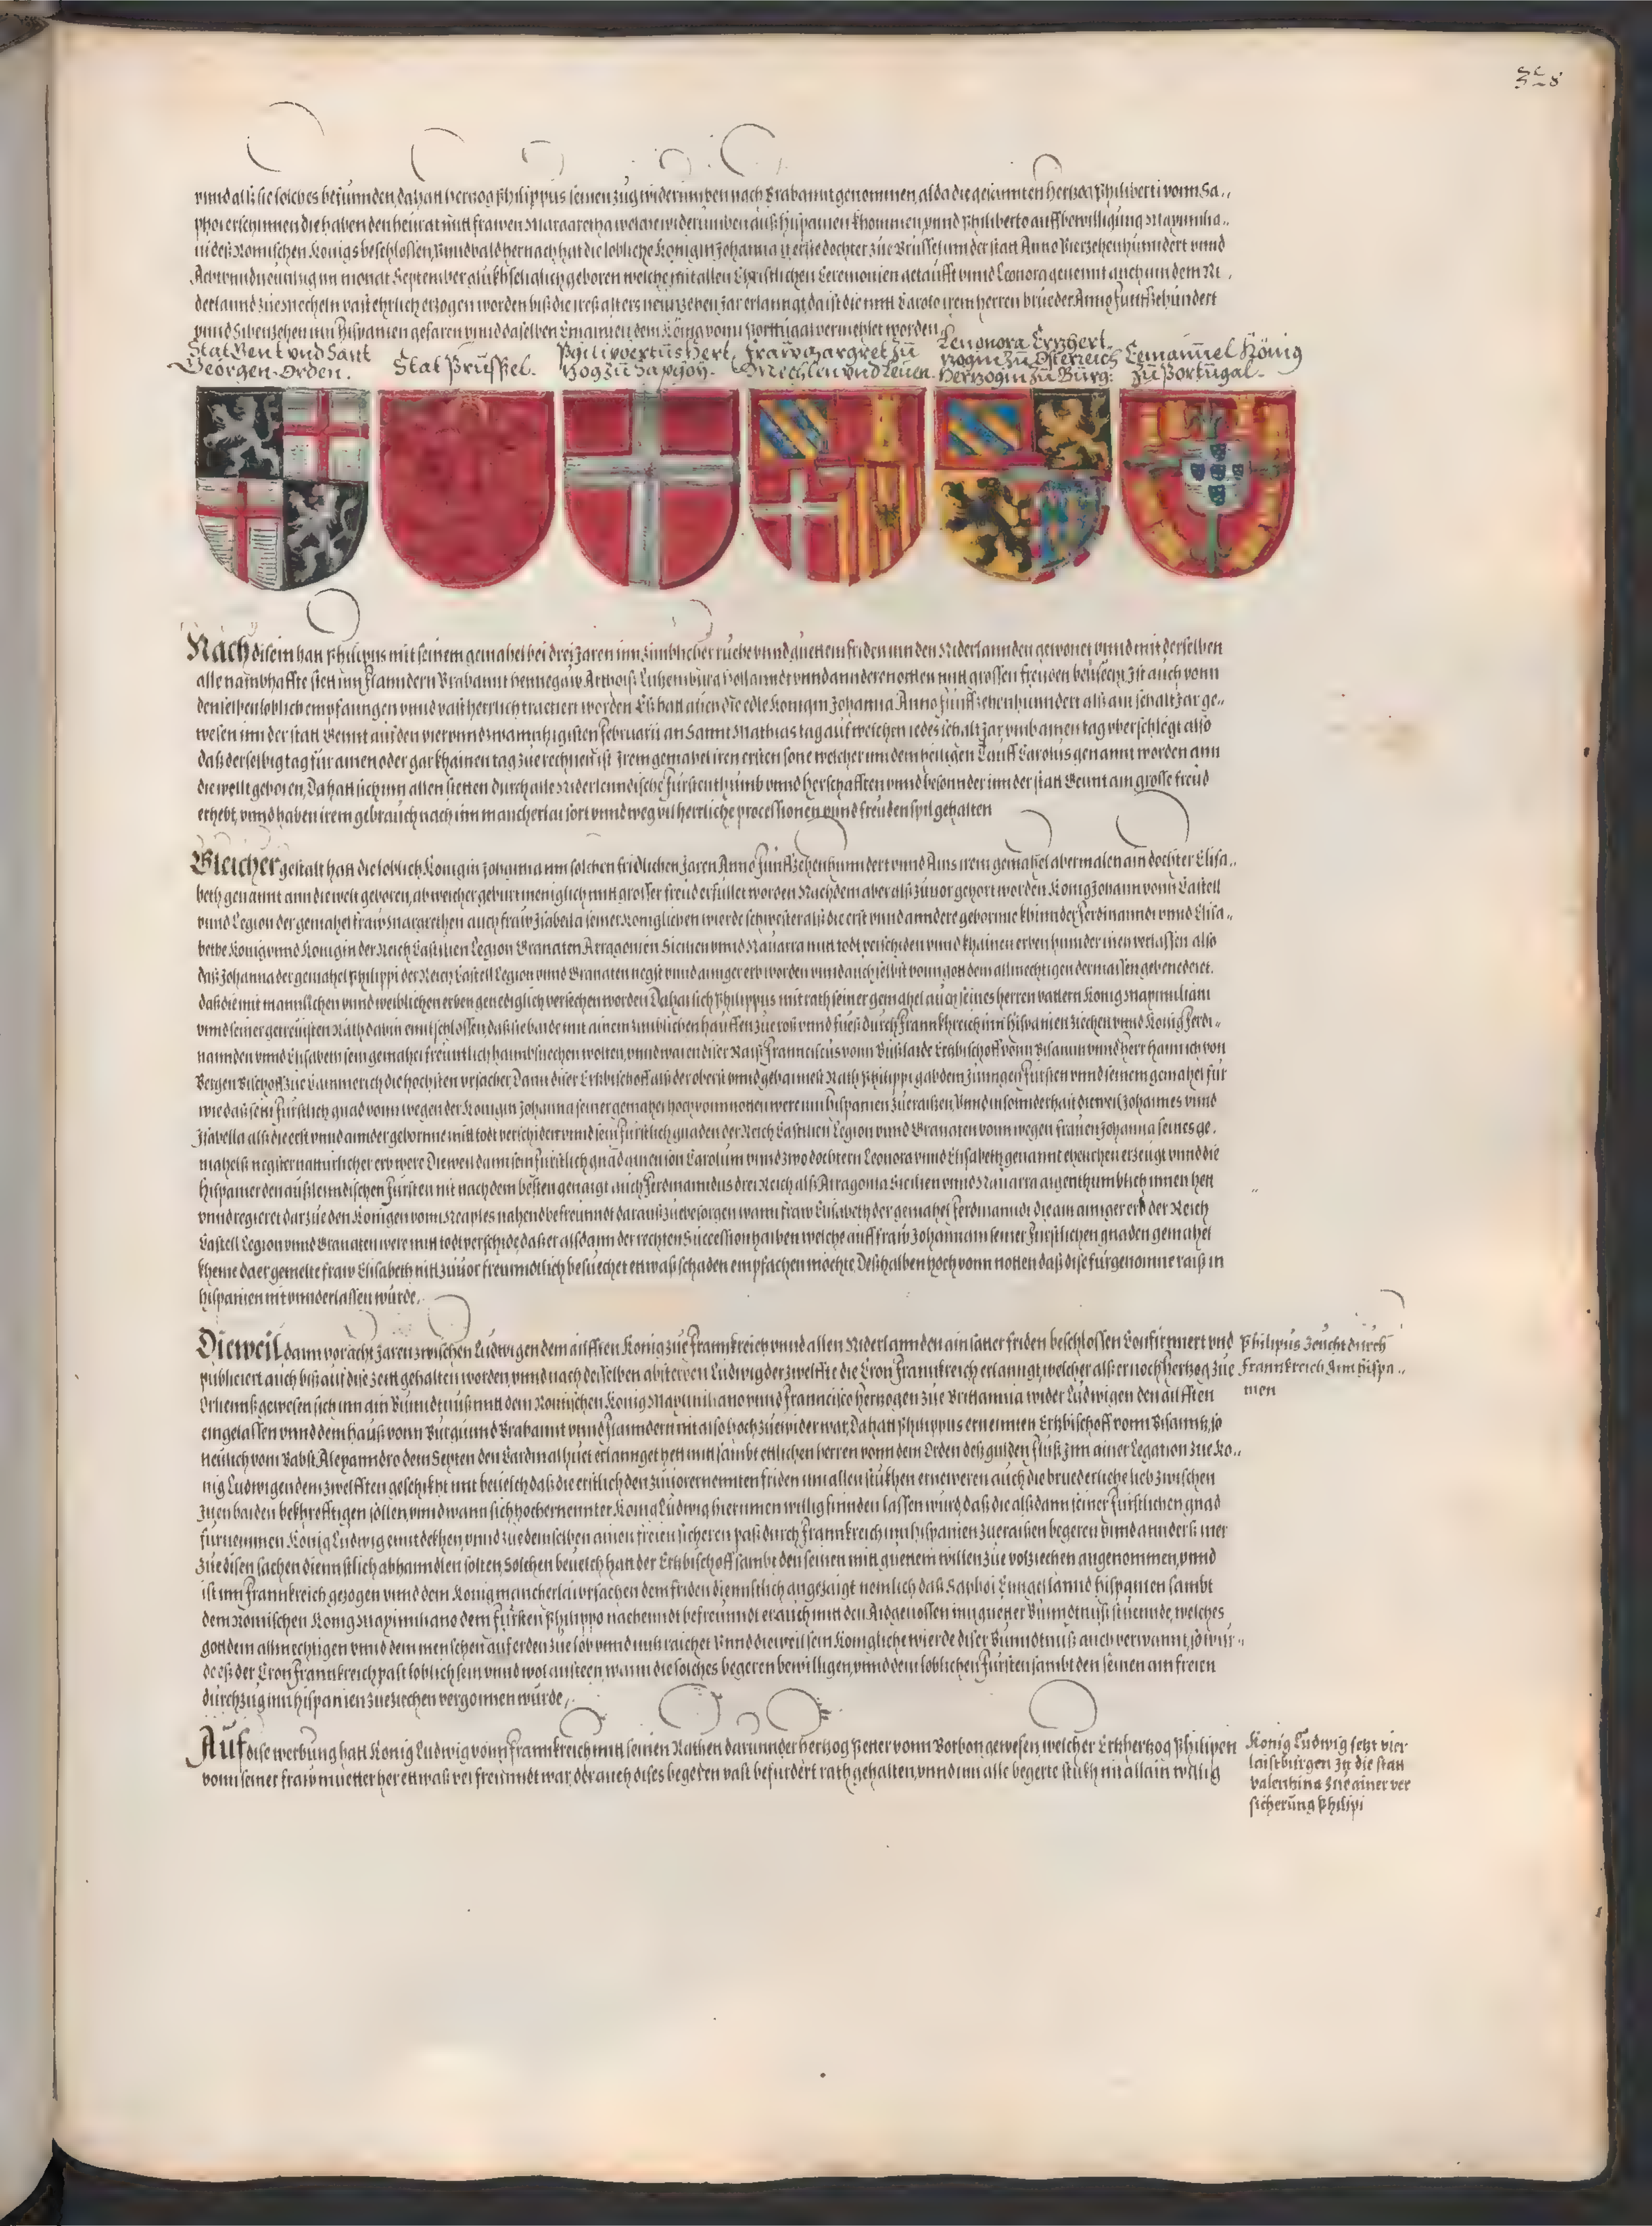 328
vnnd alls sie solches befunnden, da hatt hertzog Philippus seinen zug widerumben nach Brabannt genomen, alda die gesannten hertzog Philiberti vonn Sa,,
phoi erschinnen die haben den heirat mitt frawen Margaretha welche widerumben auß Hispanien khommen, vnnd Philiberto auff bewilligung Maximilia,,
ni deß Romischen Konigs beschlossen, Vnnd bald hernach hat die lobliche Konigin Johanna ir erste dochter zue Brüssel inn der statt Anno Vierzehenhunndert vnnd
Acht vnnd neuntzig im monat September glükhseliglich geboren welche mit allen Christlichen Ceremonien getaufft vnnd Leonora genennt auch inn dem Ni,
derlannd zue Mecheln vast ehrlich erzogen worden biß die ires alters neunzehen Jar erlanngt, da ist die mitt Carolo irem herren brueder Anno Funffzehundert
vnnd Sibenzehen inn Hispanien gefaren vnnd daselben Emanuel dem König vonn Porttugal vermehlet worden,
Stat Gent vnd Sant
Georgen Orden.
Stat Prüssel.
Philiwertus Hert,
zog zu Saphoy.
Fraw Margret zu
Mechlen vnd Leuen.
Leuonora Ertzhert,
zogin zu Österreich
Hertzogin zu Burg:
Eemanuel König
zu Portugal.
Nach disem hatt Philippus mit seinem gemahel bei drei Jaren inn zimblicher ruehe vnnd guettem friden inn den Niderlannden gewonet vnnd mit derselben
alle nambhaffte stett inn Flanndern Brabannt Hennegaw Arthois Lutzemburg Hollanndt vnnd anndere notten mitt grossen freuden besuecht, Ist auch vonn
denselben loblich empfanngen vnnd vast herrlich tractiert worden Es hatt auch die edle Konigin Johanna Anno Funffzehenhunndert alls ain schalt Jar ge,,
wesen inn der statt Gennt auf den vier vnnd zwainzigisten Februarii an Sannt Mathias tag auf welchen iedes schalt Jar vmb ainen tag vberschlegt also
daß derselbig tag für ainen oder gar khainen tag zue rechnen ist Irem gemahel iren ersten sone welcher inn dem heiligen Tauff Carolus genannt worden ann
die wellt geboren, Da hatt sich inn allen stetten durch alle Niderlenndische Fürstenthumb vnnd herschafften vnnd besonnder inn der statt Gennt ain grosse freud
erhebt, vnnd haben irem gebrauch nach inn mancherlai sort vnnd weg vil herrliche processionen vnnd freudenspil gehalten
Gleicher gestalt hatt die loblich Konigin Johanna inn solchen fridlichen Jaren Anno Funffzehenhunndert vnnd Ains irem gemahel abermalen ain dochter Elisa,,
beth genannt ann die welt geboren, ab welcher geburt meniglich mitt grosser freud erfüllet worden Nachdem aber alls zuuor gehort worden König Johann vonn Castell
vnnd Legion der gemahel fraw Margrethen auch fraw Isabella seiner Koniglichen wierde schwester alls die erst vnnd anndere geborne khinnder Ferdinanndi vnnd Elisa,,
bethe Konig vnnd Konigin der Reich Castilien Legion Granaten Arragonien Sicilien vnnd Nauarra mitt todt verschiden vnnd khainen erben hinnder inen verlassen also
daß Johanna der gemahel Philippi der Reich Castell Legion vnnd Granaten negst vnnd ainiger erb worden vnnd auch selbst vonn gott dem allmechtigen dermassen gebenedeiet,
daß die mit mannlichen vnnd weiblichen erben genediglich versechen worden Da hat sich Philippus mit rath seiner gemahel auch seines herren vattern Konig Maximiliani
vnnd seiner getreuisten Räth dahin enntschlossen, daß sie baide mit ainem zimblichen hauffen zue roß vnnd fueß durch Frannkhreich inn Hispanien ziechen vnnd Konig Ferdi,,
nannden vnnd Elisabeth sein gemahel freuntlich haimbsuechen wolten, vnnd waren diser Raiß Franciscus vonn Bußlaide Ertzbischoff vonn Bisantz vnnd herr Hainrich von
Bergen Bischoff zue Cammerich die hochsten vrsacher, Dann diser Ertzbischoff alls der oberist vnnd gehaimest Rath Philippi gab dem Jungen Fursten vnnd seinem gemahel für
wie daß sein Fürstlich gnad vonn wegen der Konigin Johanna seiner gemahel hoch vonn notten were inn Hispanien zue raißen, Vnnd in sonnderhait dieweil Johannes vnnd
Isabella alls die erst vnnd annder geborne mitt todt verschiden vnnd sein Fürstlich gnaden der Reich Castilien Legion vnnd Granaten vonn wegen frauen Johanna seines ge,
mahels negster natturlicher erb were Dieweil dann sein fürstlich gnad ainen son Carolum vnnd zwo dochtern Leonora vnnd Elisabeth genannt ehelichen erzeugt vnnd die
Hispanier den außlenndischen Fürsten nit nach dem besten genaigt auch Ferdinanndus drei Reich alls Arragonia Sicilien vnnd Nauarra aigenthumblich innen hett
vnnd regieret darzue den Königen vonn Neaples nahend befreunndt darauß zue besorgen wann fraw Elisabeth der gemahel Ferdinanndi die ain ainiger erb der Reich
Castell Legion vnnd Granaten were mitt todt verschide, daß er alsdann der rechten Succession halben welche auff fraw Johannam seiner Fürstlichen gnaden gemahel
kheme da er gemelte fraw Elisabeth nitt zuuor freunndtlich besuechet etwaß schaden empfachen möchte, Deßhalben hoch vonn notten daß dise fürgenomne raiß in
Hispanien nit vnnderlassen würde,
Dieweil dann vor acht Jaren zwischen Ludwigen dem ailfften Konig zue Frannkreich vnnd allen Niderlannden ain satter friden beschlossen Confirmiert vnd
publiciert auch biß auf dise zeitt gehalten worden, vnnd nach desselben absterben Ludwig der zwelffte die Cron Frannkreich erlanngt, welcher alls er noch Hertzog zue
Orlienns gewesen sich inn ain Bünndtnuß mitt dem Römischen König Maximiliano vnnd Francisco Hertzogen zue Brittannia wider Ludwigen den ailfften
eingelassen vnnd dem hauß vonn Burgunnd Brabannt vnnd Flanndern nit also hoch zuewider war, Da hatt Philippus ernennten Ertzbischoff vonn Bisanntz, so
neulich vom Babst Alexanndro dem Sexten den Cardinalhuet erlannget hett mitt sambt ettlichen herren vonn dem Orden deß gulden Fluß Inn ainer Legation zue Ko,,
nig Ludwigen dem zwelfften geschikht mit beuelch daß die erstlich den zuuor ernennten friden inn allen stukhen erneweren auch die bruederliche lieb zwischen
Inen baiden bekhrefftigen sollen, vnnd wann sich hochernennter König Ludwig hierinnen willig finnden lassen wurd, daß die alsdann seiner Fürstlichen gnad
fürnemmen König Ludwig enntdekhen, vnnd zue demselben ainen freien sicheren paß durch Frannkreich inn Hispanien zueraisen begeren vnnd annders mer
zue disen sachen diennstlich abhanndlen solten, Solchen beuelch hatt der Ertzbischoff sambt den seinen mitt guetem willen zue volziechen angenommen, vnnd
ist inn Frannkreich gezogen vnnd dem Konig mancherlai vrsachen dem friden diennstlich angezaigt nemlich daß Saphoi Enngellannd Hispanien sambt
dem Römischen König Maximiliano dem Fürsten Philippo nachenndt befreunndt er auch mitt den Aidgenossen inn guetter Bünndtnuß stüennde, welches
gott dem allmechtigen vnnd dem menschen auf erden zue lob vnnd nutz raichet Vnnd dieweil sein Konigliche wierde diser Bunndtnuß auch verwannt, so wur,,
de es der Cron Frannkreich vast loblich sein, vnnd wol ansteen wann die solches begeren bewilligen, vnnd dem loblichen Fürsten sambt den seinen ain freien
durchzug inn Hispanien zueziechen vergonnen würde,
Philipus zeucht durch
Frannkreich Inn Hispa,,
nien
Auf dise werbung hatt Konig Ludwig vonn Frannkreich mitt seinen Räthen darunnder hertzog Petter vonn Borbon gewesen, welcher Ertzhertzog Philipen
vonn seiner fraw muetter her ettwaß verfreunndt war, der auch dises begeren vast befurdert rath gehalten, vnnd inn alle begerte stükh nit allain willig
König Ludwig setzt vier
laistburgen In die statt
valenhina zue ainer ver
sicherung Philipi